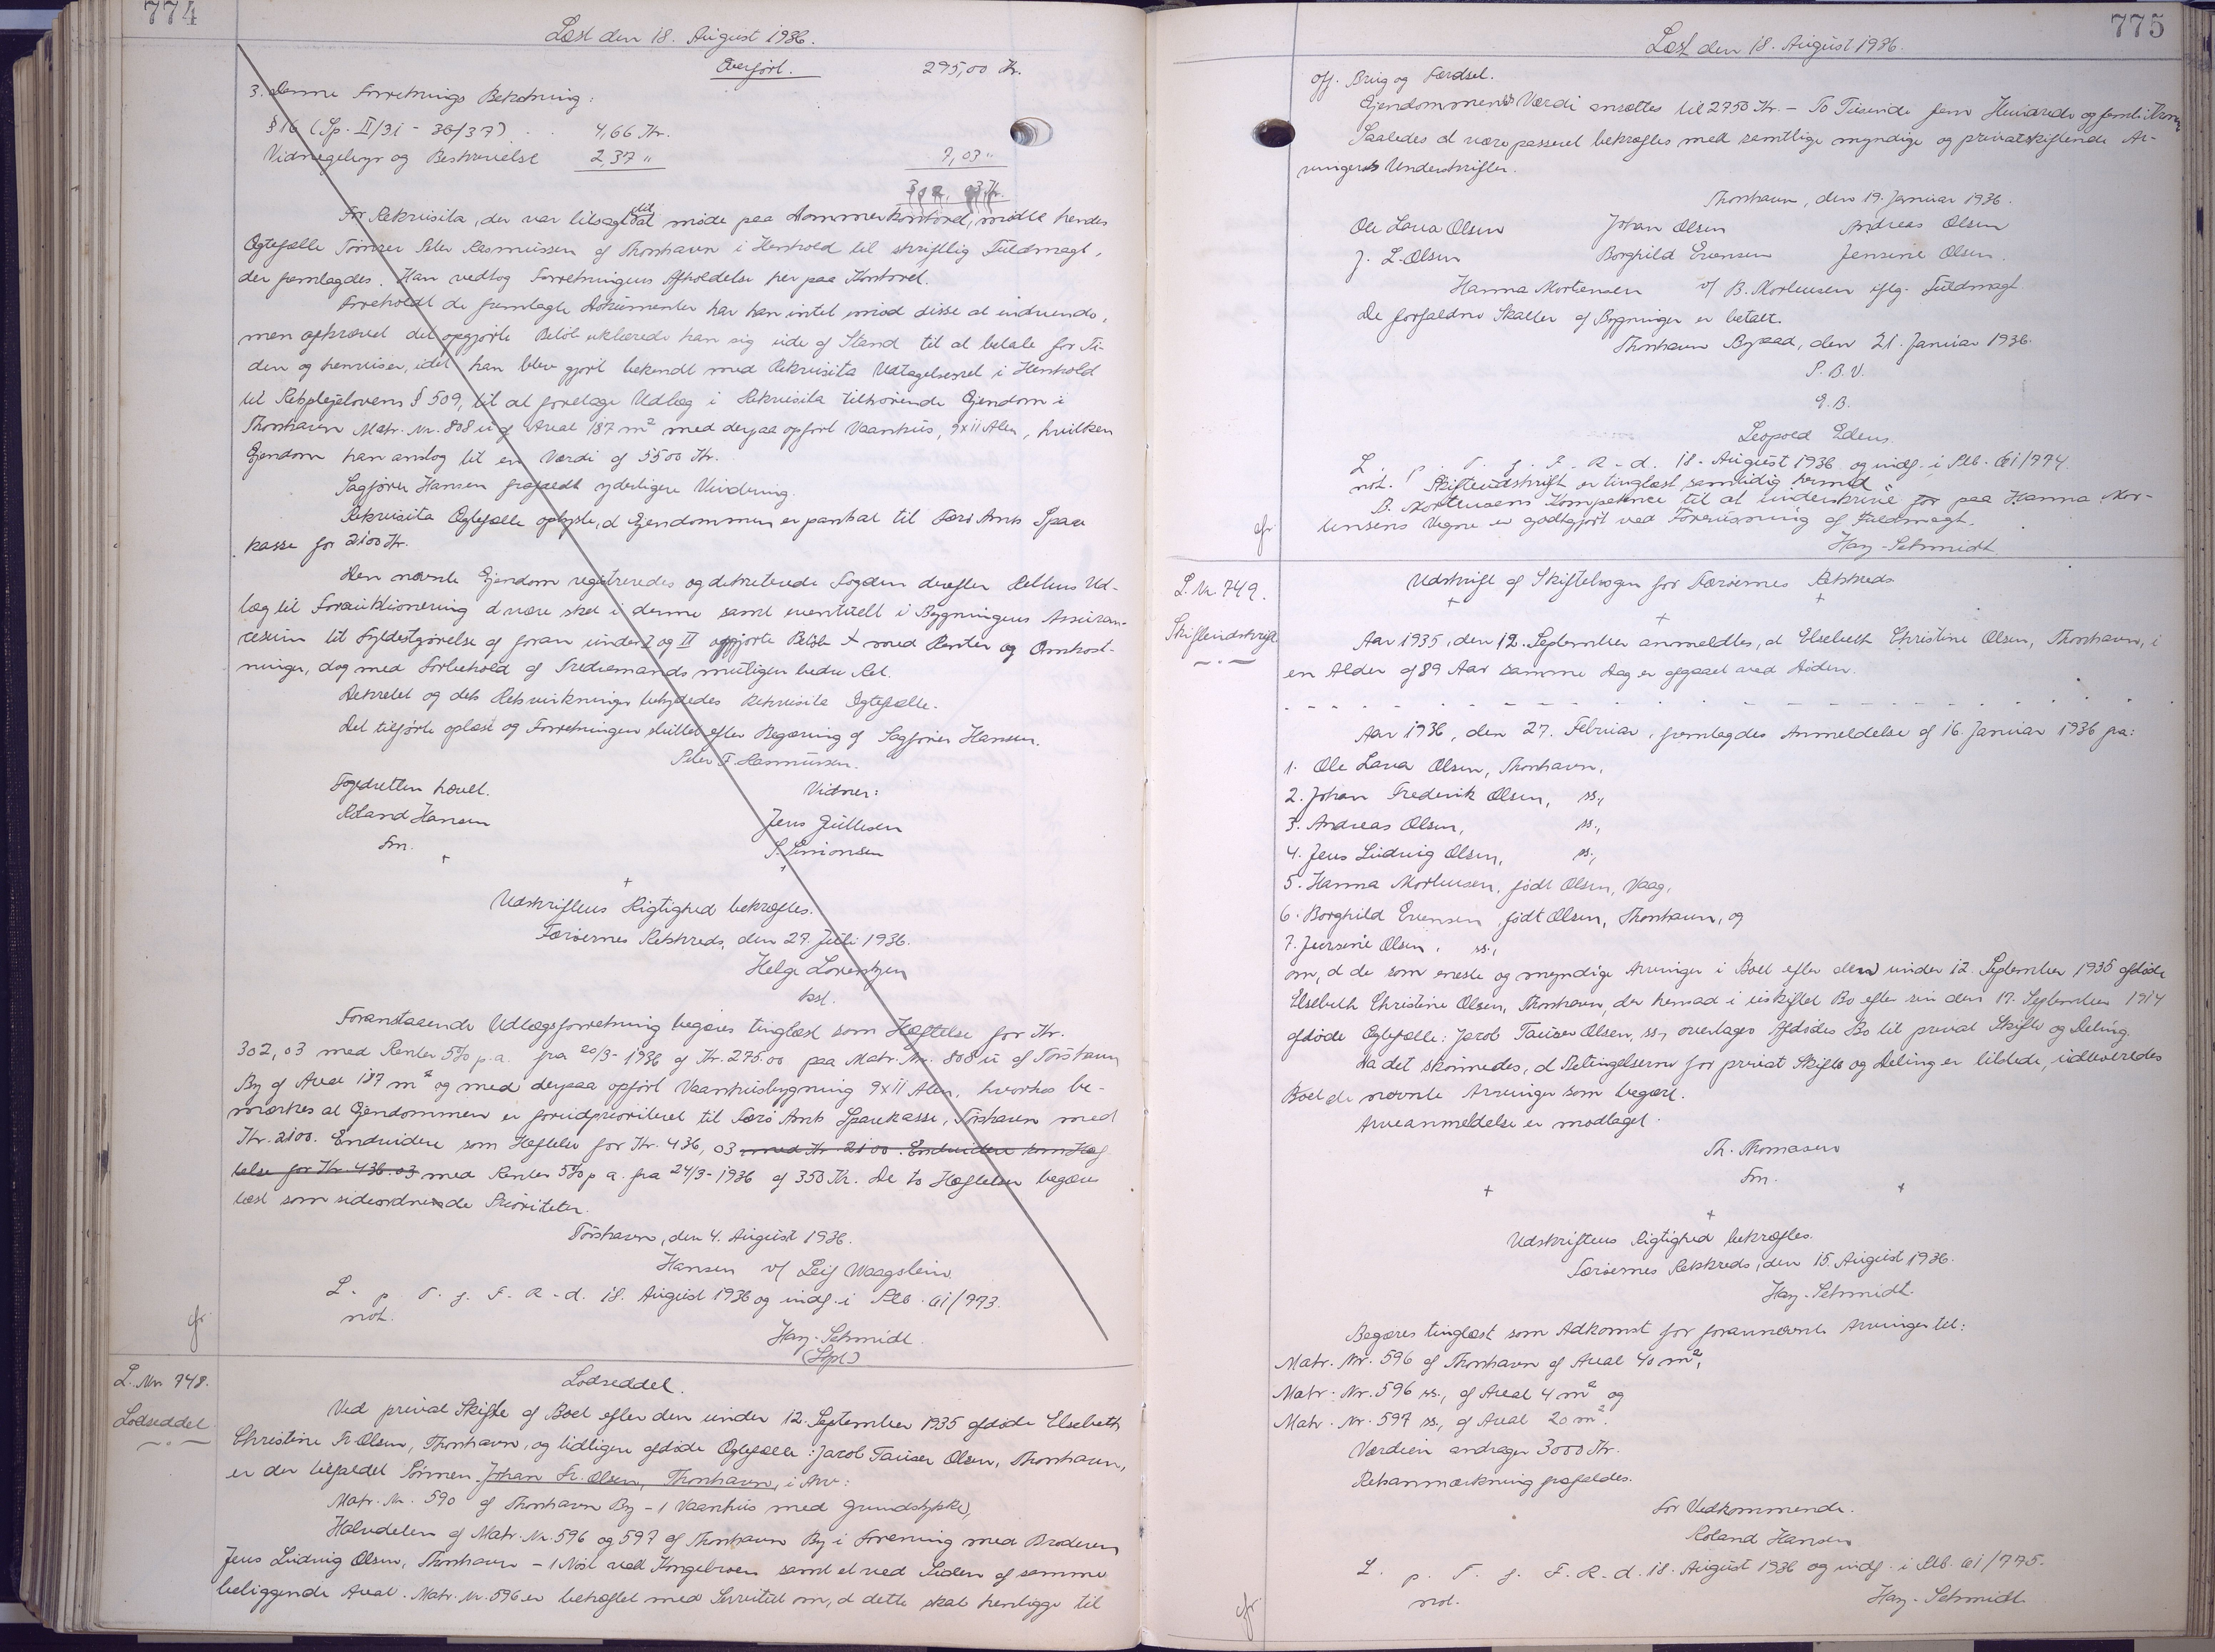 774
Læst den 18. August 1936.
Overført. 295,00 Kr.
3. Denne Forretnings Bekostning:
§ 16 (Sp. II/31 - 36/37) . . 4,66 Kr.
Vidnegebyr og Beskrivelse 2,37 "
7,03 "
302,03 Kr.
For Rekvisita, der var tilsagt til at møde paa Dommerkontoret, mødte hendes
Ægtefælle Tømrer Peter Rasmussen af Thorshavn i Henhold til skriftlig Fuldmagt,
der fremlagdes. Han vedtog Forretningens Afholdelse her paa Kontoret.
Foreholdt de fremlagte Dokumenter har han intet imod disse at indvende,
men afkrævet det opgjorte Beløb erklærede han sig ude af Stand til at betale for Ti-
den og henviser, idet han blev gjort bekendt med Rekvisita Udtagelsesret i Henhold
til Retsplejelovens § 509, til at foretage Udlæg i Rekvisita tilhørende Ejendom i
Thorshavn Matr. Nr. 808 u af Areal 187 m² med derpaa opført Vaanhus, 9 x 11 Alen, hvilken
Ejendom han anslog til en Værdi af 5500 Kr.
Sagfører Hansen frafaldt yderligere Vurdering.
Rekvisita Ægtefælle oplyste, at Ejendommen er pantsat til Færø Amts Spare
kasse for 2100 Kr.
Den nævnte Ejendom registreredes og dekreterede Fogden derefter Rettens Ud-
læg til Forauktionering at være sket i denne samt eventuelt i Bygningens Assuran-
cesum til Fyldestgørelse af foran under I og II opgjorte Beløb + med Renter og Omkost-
ninger, dog med Forbehold af Trediemands mulige bedre Ret.
Dekretet og dets Retsvirkninger betydedes Rekvisita Ægtefælle.
Det tilførte oplæst og Forretningen sluttet efter Begæring af Sagfører Hansen.
Peter F. Rasmussen.
Fogedretten hævet. Vidner:
Roland Hansen Jens Gullesen
Fm. S. Simonsen
Udskriftens Rigtighed bekræftes.
Færøernes Retskreds, den 27. Juli 1936.
Helge Lorentzen
kst.
Foranstaaende Udlægsforretning begæres tinglæst som Hæftelse for Kr.
302,03 med Renter 5% p.a. fra 20/3-1936 af Kr. 275.00 paa Matr. Nr. 808 u af Tórshavn
By af Areal 187 m² og med derpaa opført Vaanhusbygning 9 x 11 Alen, hvorhos be-
mærkes at Ejendommen er forudprioriteret til Færø Amts Sparekasse, Tórshavn med
Kr. 2100. Endvidere som Hæftelse for Kr. 436,03 med Kr 2100. Endvidere som Hæf
telse for Kr 436.03 med Renter 5% p a. fra 24/3-1936 af 350 Kr. De to Hæftelser begæres
læst som sideordnede Prioriteter.
Tórshavn, den 4. August 1936.
Hansen v/ Leif Waagstein.
L. p. T. f. F. R. d. 18. August 1936 og indf. i Ptb. 61/773.
not.
Hay-Schmidt.
(Spl)
L. Nr. 748.
Lodseddel
Lodseddel.
Ved privat Skifte af Boet efter den under 12. September 1935 afdøde Elsebeth
Christine Fr. Olsen, Thorshavn, og tidligere afdøde Ægtefælle: Jacob Tauser Olsen, Thorshavn,
er der tilfaldet Sønnen Johan Fr. Olsen, Thorshavn, i Arv:
Matr. Nr. 590 af Thorshavn By - 1 Vaanhus med Grundstykke,
Halvdelen af Matr. Nr. 596 og 597 af Thorshavn By i Forening med Broderen
Jens Ludvig Olsen, Thorshavn - 1 Nøst ved Kongebroen samt et ved Siden af samme
beliggende Areal. Matr. Nr. 596 er behæftet med Servitut om, at dette skal henligge til
775
Læst den 18. August 1936.
off. Brug og Færdsel.
Ejendommens Værdi ansættes til 2750 Kr. - To Tusinde fem Hundrede og femti Kroner
Saaledes at være passeret bekræftes med samtlige myndige og privatskiftende Ar-
vingers Underskrifter.
Thorshavn, den 19. Januar 1936.
Ole Lava Olsen Johan Olsen Andreas Olsen
J. L. Olsen Borghild Evensen Jensine Olsen.
Hanna Mortensen v/ B. Mortensen iflg. Fuldmagt
De forfaldne Skatter af Bygninger er betalt.
Thorshavn Byraad, den 21. Januar 1936.
P. B. V.
E. B.
Leopold Edens.
L. p. T. f. F. R. d. 18. August 1936 og indf. i Ptb. 61/774.
not. Skifteudskrift er tinglæst samtidig hermed
B. Mortensens Kompetence til at underskrive for paa Hanna Mor-
tensens Vegne er godtgjort ved Forevisning af Fuldmagt.
Hay-Schmidt
L. Nr. 749.
Skifteudskrift
Udskrift af Skiftebogen for Færøernes Retskreds
Aar 1935, den 12. September anmeldtes, at Elsebeth Christine Olsen, Thorshavn, i
en Alder af 89 Aar samme Dag er afgaaet ved Døden.
Aar 1936, den 27. Februar, fremlagdes Anmeldelse af 16. Januar 1936 fra:
1. Ole Lava Olsen, Thorshavn,
2. Johan Frederik Olsen, ss.,
3. Andreas Olsen, ss.,
4. Jens Ludvig Olsen, ss.,
5. Hanna Mortensen, født Olsen, Vaag,
6. Borghild Evensen, født Olsen, Thorshavn, og
7. Jensine Olsen, ss.,
om, at de som eneste og myndige Arvinger i Boet efter den under 12. September 1935 afdøde
Elsebeth Christine Olsen, Thorshavn, der hensad i uskiftet Bo efter sin den 19. September 1914
afdøde Ægtefælle: Jacob Tauser Olsen, ss., overtager Afdødes Bo til privat Skifte og Deling.
Da det skønnedes, at Betingelserne for privat Skifte og Deling er tilstede, udleveredes
Boet de nævnte Arvinger som begært.
Arveanmeldelse er modtaget.
Th. Thomasen
Fm.
Udskriftens Rigtighed bekræftes.
Færøernes Retskreds, den 15. August 1936.
Hay-Schmidt.
Begæres tinglæst som Adkomst for forannævnte Arvinger til:
Matr. Nr. 596 af Thorshavn af Areal 40 m²,
Matr. Nr. 596 ss., af Areal 4 m² og
Matr. Nr. 597 ss., af Areal 20 m².
Værdien andrager 3000 Kr.
Retsanmærkning frafaldes.
For Vedkommende.
Roland Hansen
L. p. T. f. F. R. d. 18. August 1936 og indf. i Ptb. 61/775.
not.
Hay-Schmidt